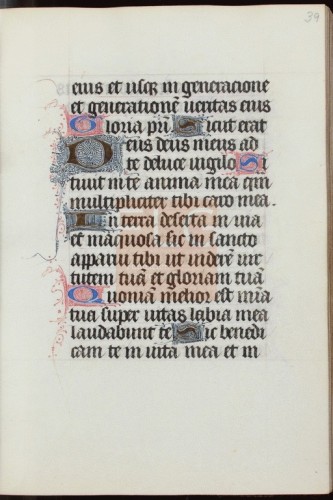 39
eius et usq; in generacione
et generationē ueritas eius
Gloria pr̄i Sicut erat
Deus deus meus ad
te deluce uigilo Si
tiuit in te anima mea q̄m
multipliciter tibi caro mea.
In terra deserta in uia
et inaquosa sic in sancto
apparui tibi ut uiderē uir
tutem tuā et gloriam tuā
Quoniam melior est mīa
tua super uitas labia mea
laudabunt te Sic benedi
cam te in uita mea et in